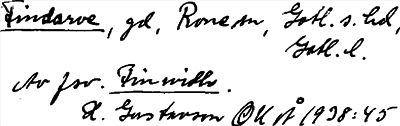 Findarve, gd, Rone sn, Gotl. s. hd,
Gotl. l.
Av fsv. Finwidh.
H. Gustavson OUÅ 1938:45